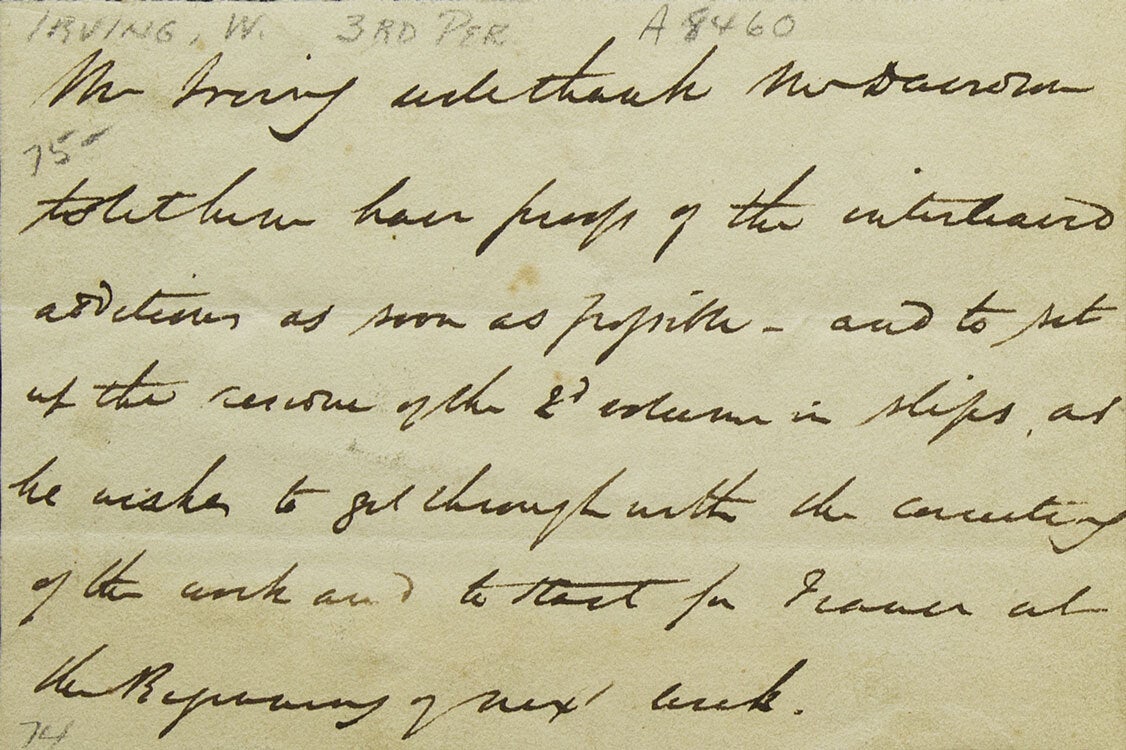 IRVING, W. 3RD PER. A 8460
Mr Irving will thank Mr Davison
75-
to let him have proofs of the interleaved
additions as soon as possible - and to set
up the residue of the 2d volume in slips, as
he wishes to get through with the correcting
of the work and to start for France at
the Beginning of next week.
74